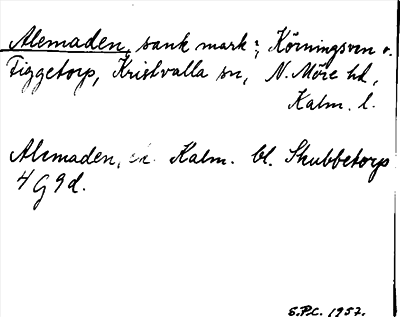 Alemaden, sank mark; Körningsven o.
Tiggetorp, Kristvalla sn, N. Möre hd,
Kalm. l.
Alemaden, Kalm. bl. Skubbetorp
4 G 9 d.
S.P.C. 1957.